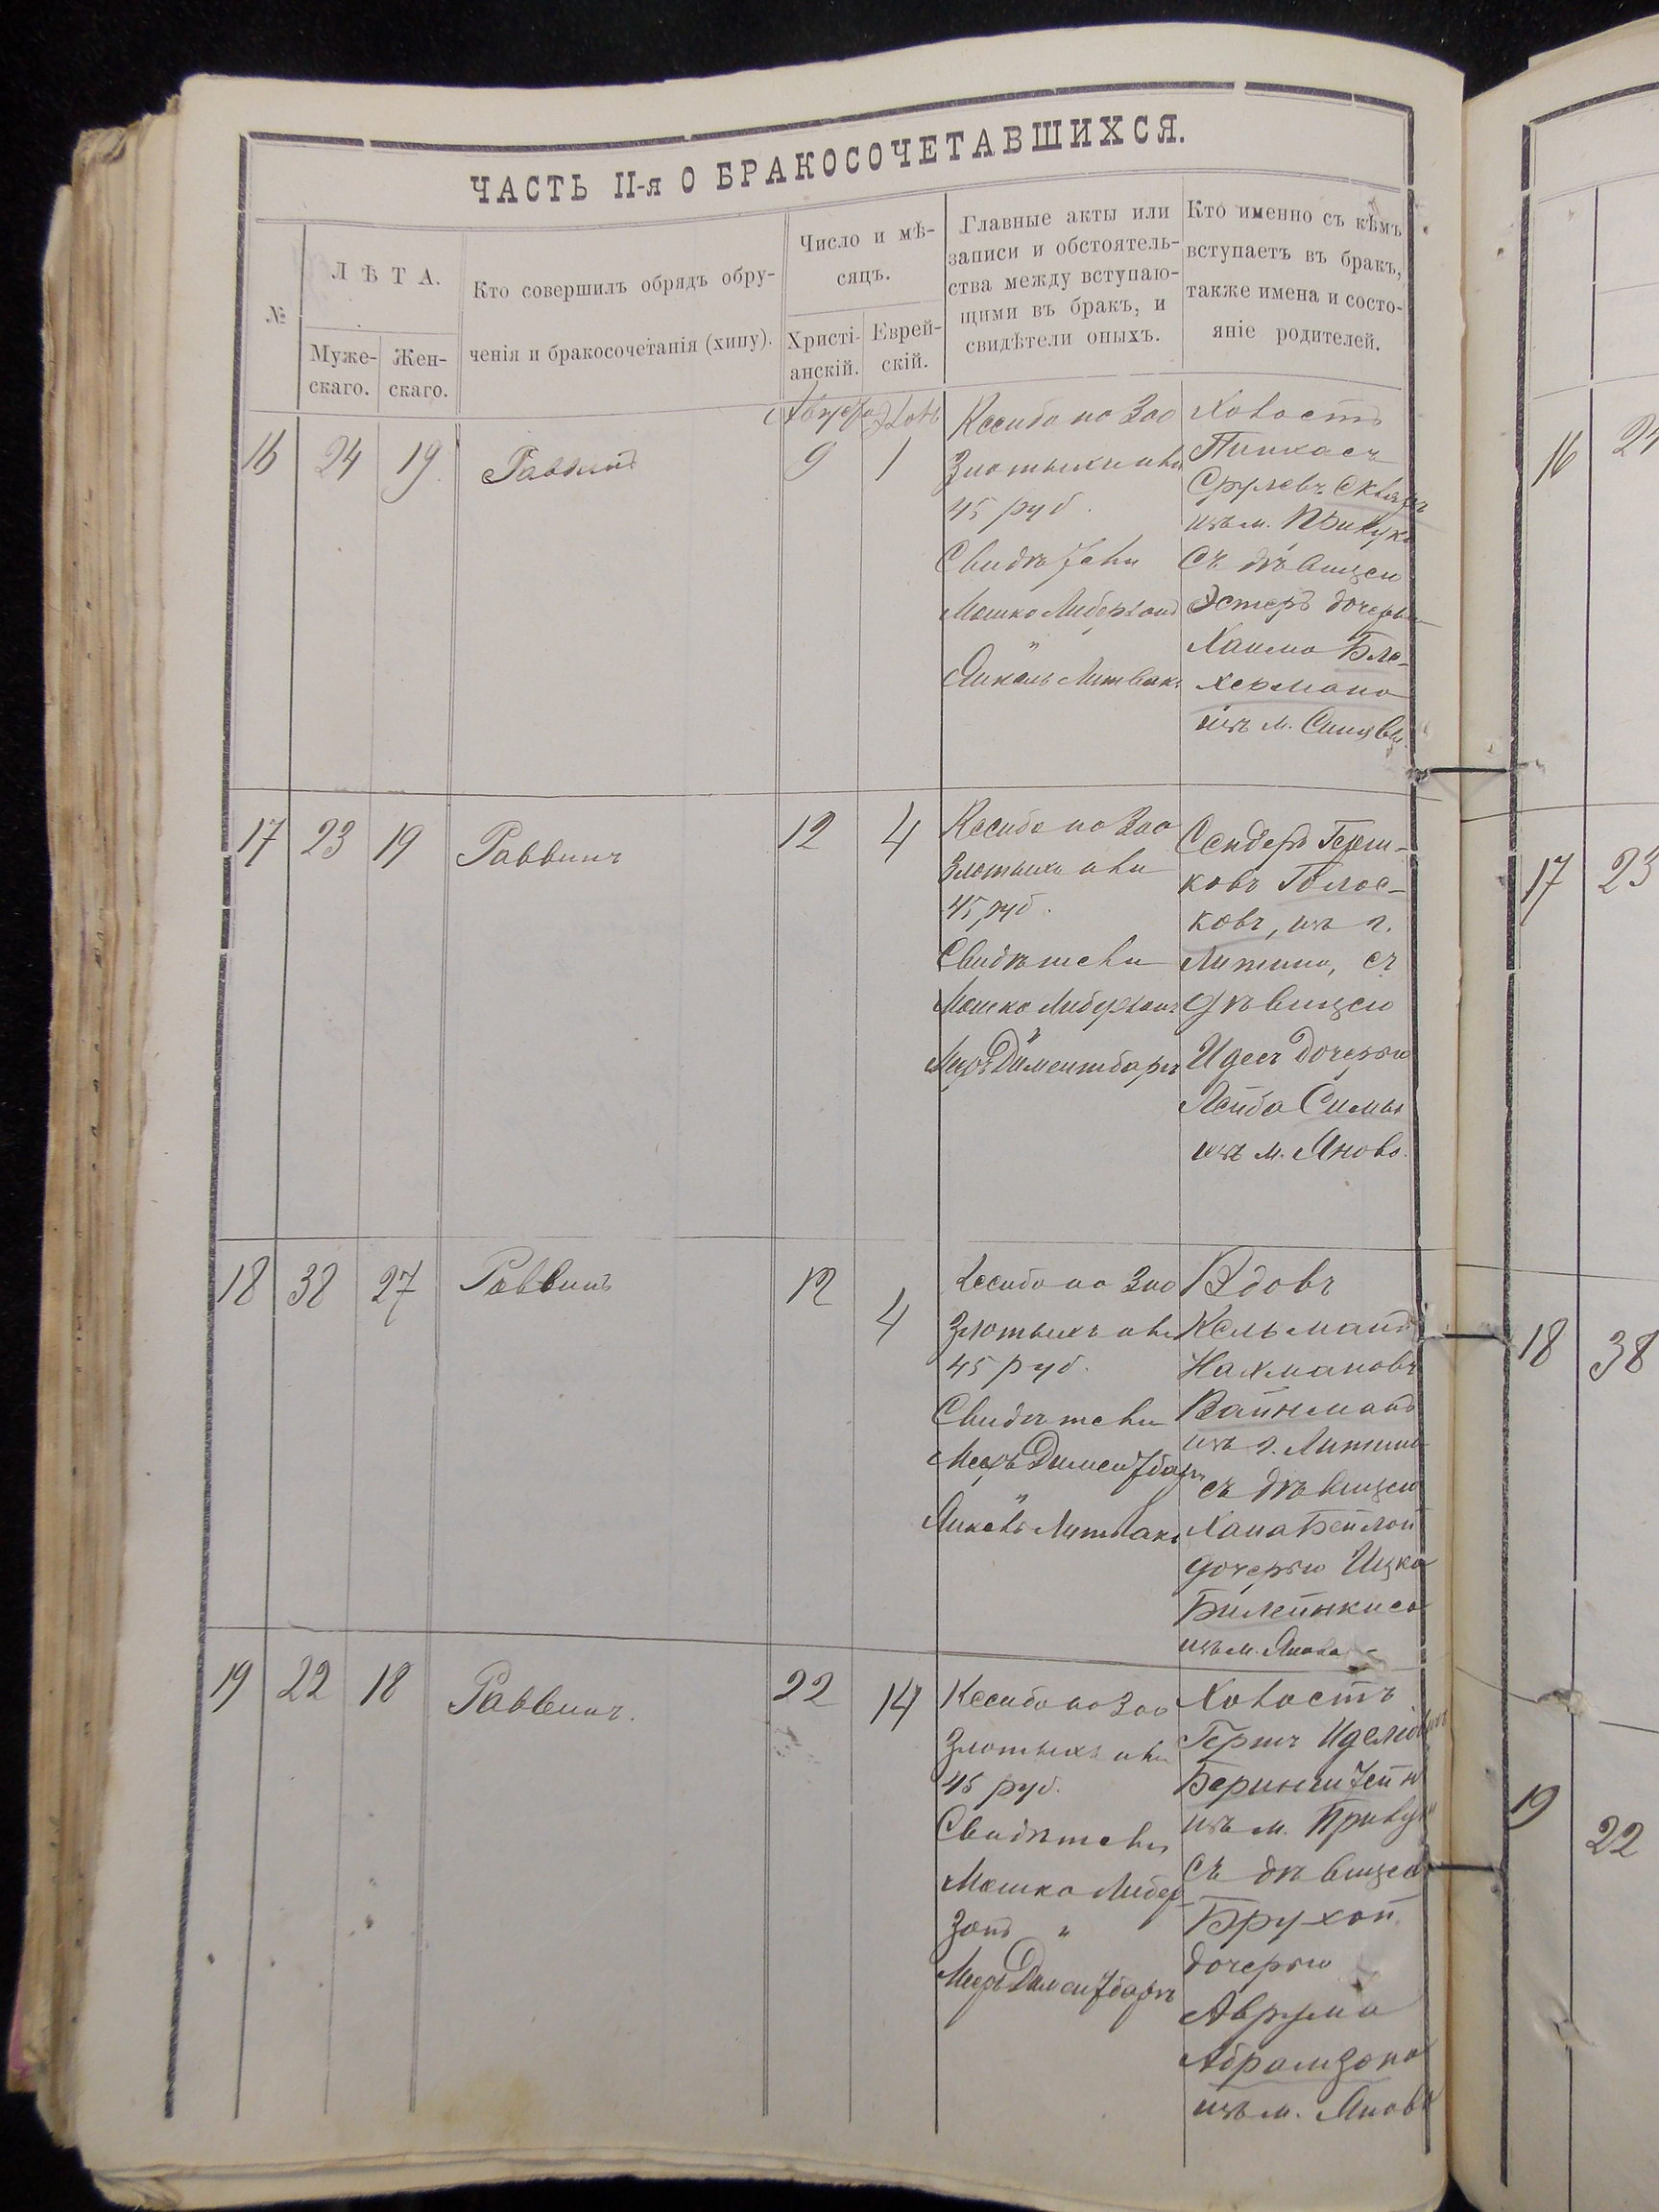 ЧАСТЬ II-я О БРАКОСОЧЕТАВШИХСЯ.
№
ЛѢТА.
Муже-
скаго.
Жен-
скаго.
Кто совершилъ обрядъ обру-
ченія и бракосочетанія (хипу).
Число и мѣ-
сяцъ.
Христі-
анскій.
Еврей-
скій.
Главные акты или
записи и обстоятель-
ства между вступаю-
щими въ бракъ, и
свидѣтели оныхъ.
Кто именно съ кѣмъ
вступаетъ въ бракъ,
также имена и состо-
яніе родителей.
16 24 19 Раввинъ
Августа
9 1
Кссиба на 300
Злотыхъ или
45 руб.
Свидѣтели
Мошко Либерзонъ
"
Янкель Литвакъ
Холостъ
Пинхасъ
Срулевъ Скляръ
изъ м. Прилукъ
Съ дѣвицею
Эстеръ дочерью
Хаима Бле-
хермана
изъ м. Синявы
17 23 19 Раввинъ
12 4
Кссиба на 300
Злотыхъ или
45 руб.
Свидѣтели
Мошко Либерзонъ
"
Мееръ Диментбаргъ
Сендеръ Герш-
ковъ Голос-
ковъ, изъ г.
Литина, съ
дѣвицею
Идесъ дочерью
Лейба Симы
изъ м. Янова.
18 38 27 Раввинъ
12 4
Кссиба на 300
Злотыхъ или
45 руб.
Свидѣтели
Мееръ Диментбаргъ
"
Янкель Литвакъ
Вдовъ
Кельманъ
Нахмановъ
Вайнманъ
изъ г. Литина
съ дѣвицею
Хана Бейлой
дочерью Ицка
Билейнкиса
изъ м. Янова
19 22 18 Раввинъ.
22 14
Кссиба на 300
Злотыхъ или
45 руб.
Свидѣтели
Мошко Либер-
зонъ "
Мееръ Диментбаргъ
Холостъ
Гершъ Иделіовичъ
Беринштейнъ
изъ м. Прилукъ
съ дѣвицею
Брухой
дочерью
Аврума
Абрамзона
изъ м. Янова
16 24
17 23
18 38
19 22